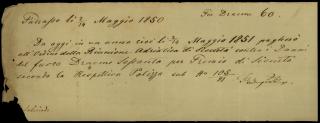 Patrasso li 2/14 Maggio 1850 Per Dracme 60.
Da oggi in un anno cioè li 2/14 Maggio 1851 pagherò
all'Ordine della Riunione Adriatica di Sicurtà
del fuoco Dracme Sessanta per Premio di Sicurtà
secondo la Rispettiva Polizza sub No 105